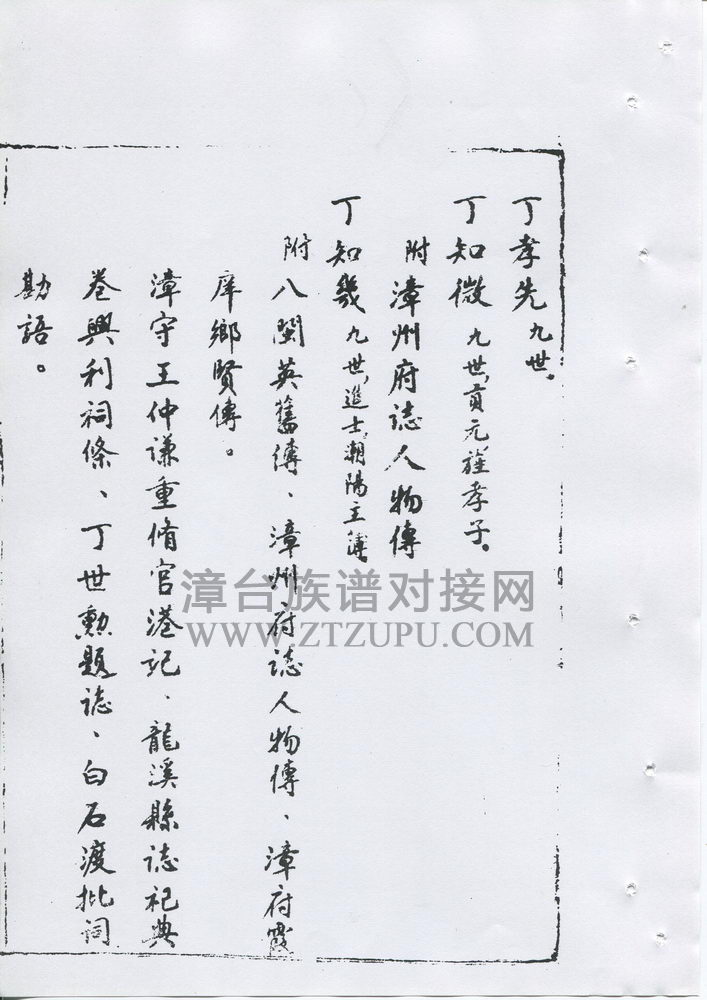 丁孝先 九世。
丁知微 九世，貢元，旌孝子。
附 漳州府誌人物傳
丁知幾 九世，進士，潮陽主簿。
附 八閩英舊傳、漳州府誌人物傳、漳府霞
庠鄉賢傳。
漳守王仲謙重脩官港記、龍溪縣誌祀典
卷興利祠條、丁世勲題誌、白石渡批詞
勘語。
漳台族谱对接网
WWW.ZTZUPU.COM